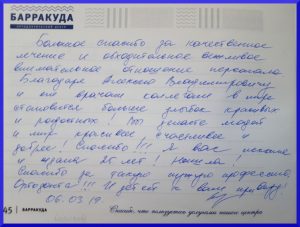 БАРРАКУДА
ОРТОДОНТИЧЕСКИЙ ЦЕНТР
Большое спасибо за качественное
лечение и обходительное вежливое
внимательное отношение персонала
Благодаря Алексею Владимировичу
и его врачам коллегам в мире
становится больше улыбок красивых
и радостных! Вы делаете людей
и мир красивее счастливее и
добрее! Спасибо!!! Я вас искала
и ждала 25 лет! Нашла!
Спасибо за такую нужную профессию,
Ортодонта!!! И детей к вам приведу!
06.03.19
45 БАРРАКУДА
Спасибо, что пользуетесь услугами нашего центра